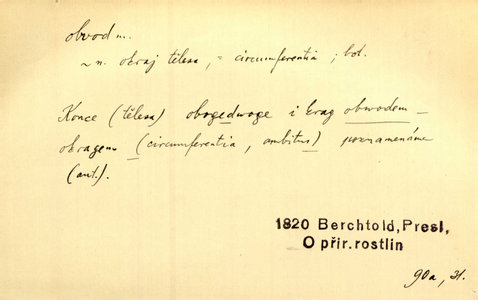 obvod m.
~ n. okraj tělesa, = circumferentia ; bot.
Konce (tělesa) obogedwoge i krag obwodem –
okragem (circumferentia, ambitus) poznamenáme
(aut.).
1820 Berchtold, Presl,
O přir. rostlin
90a, 31.